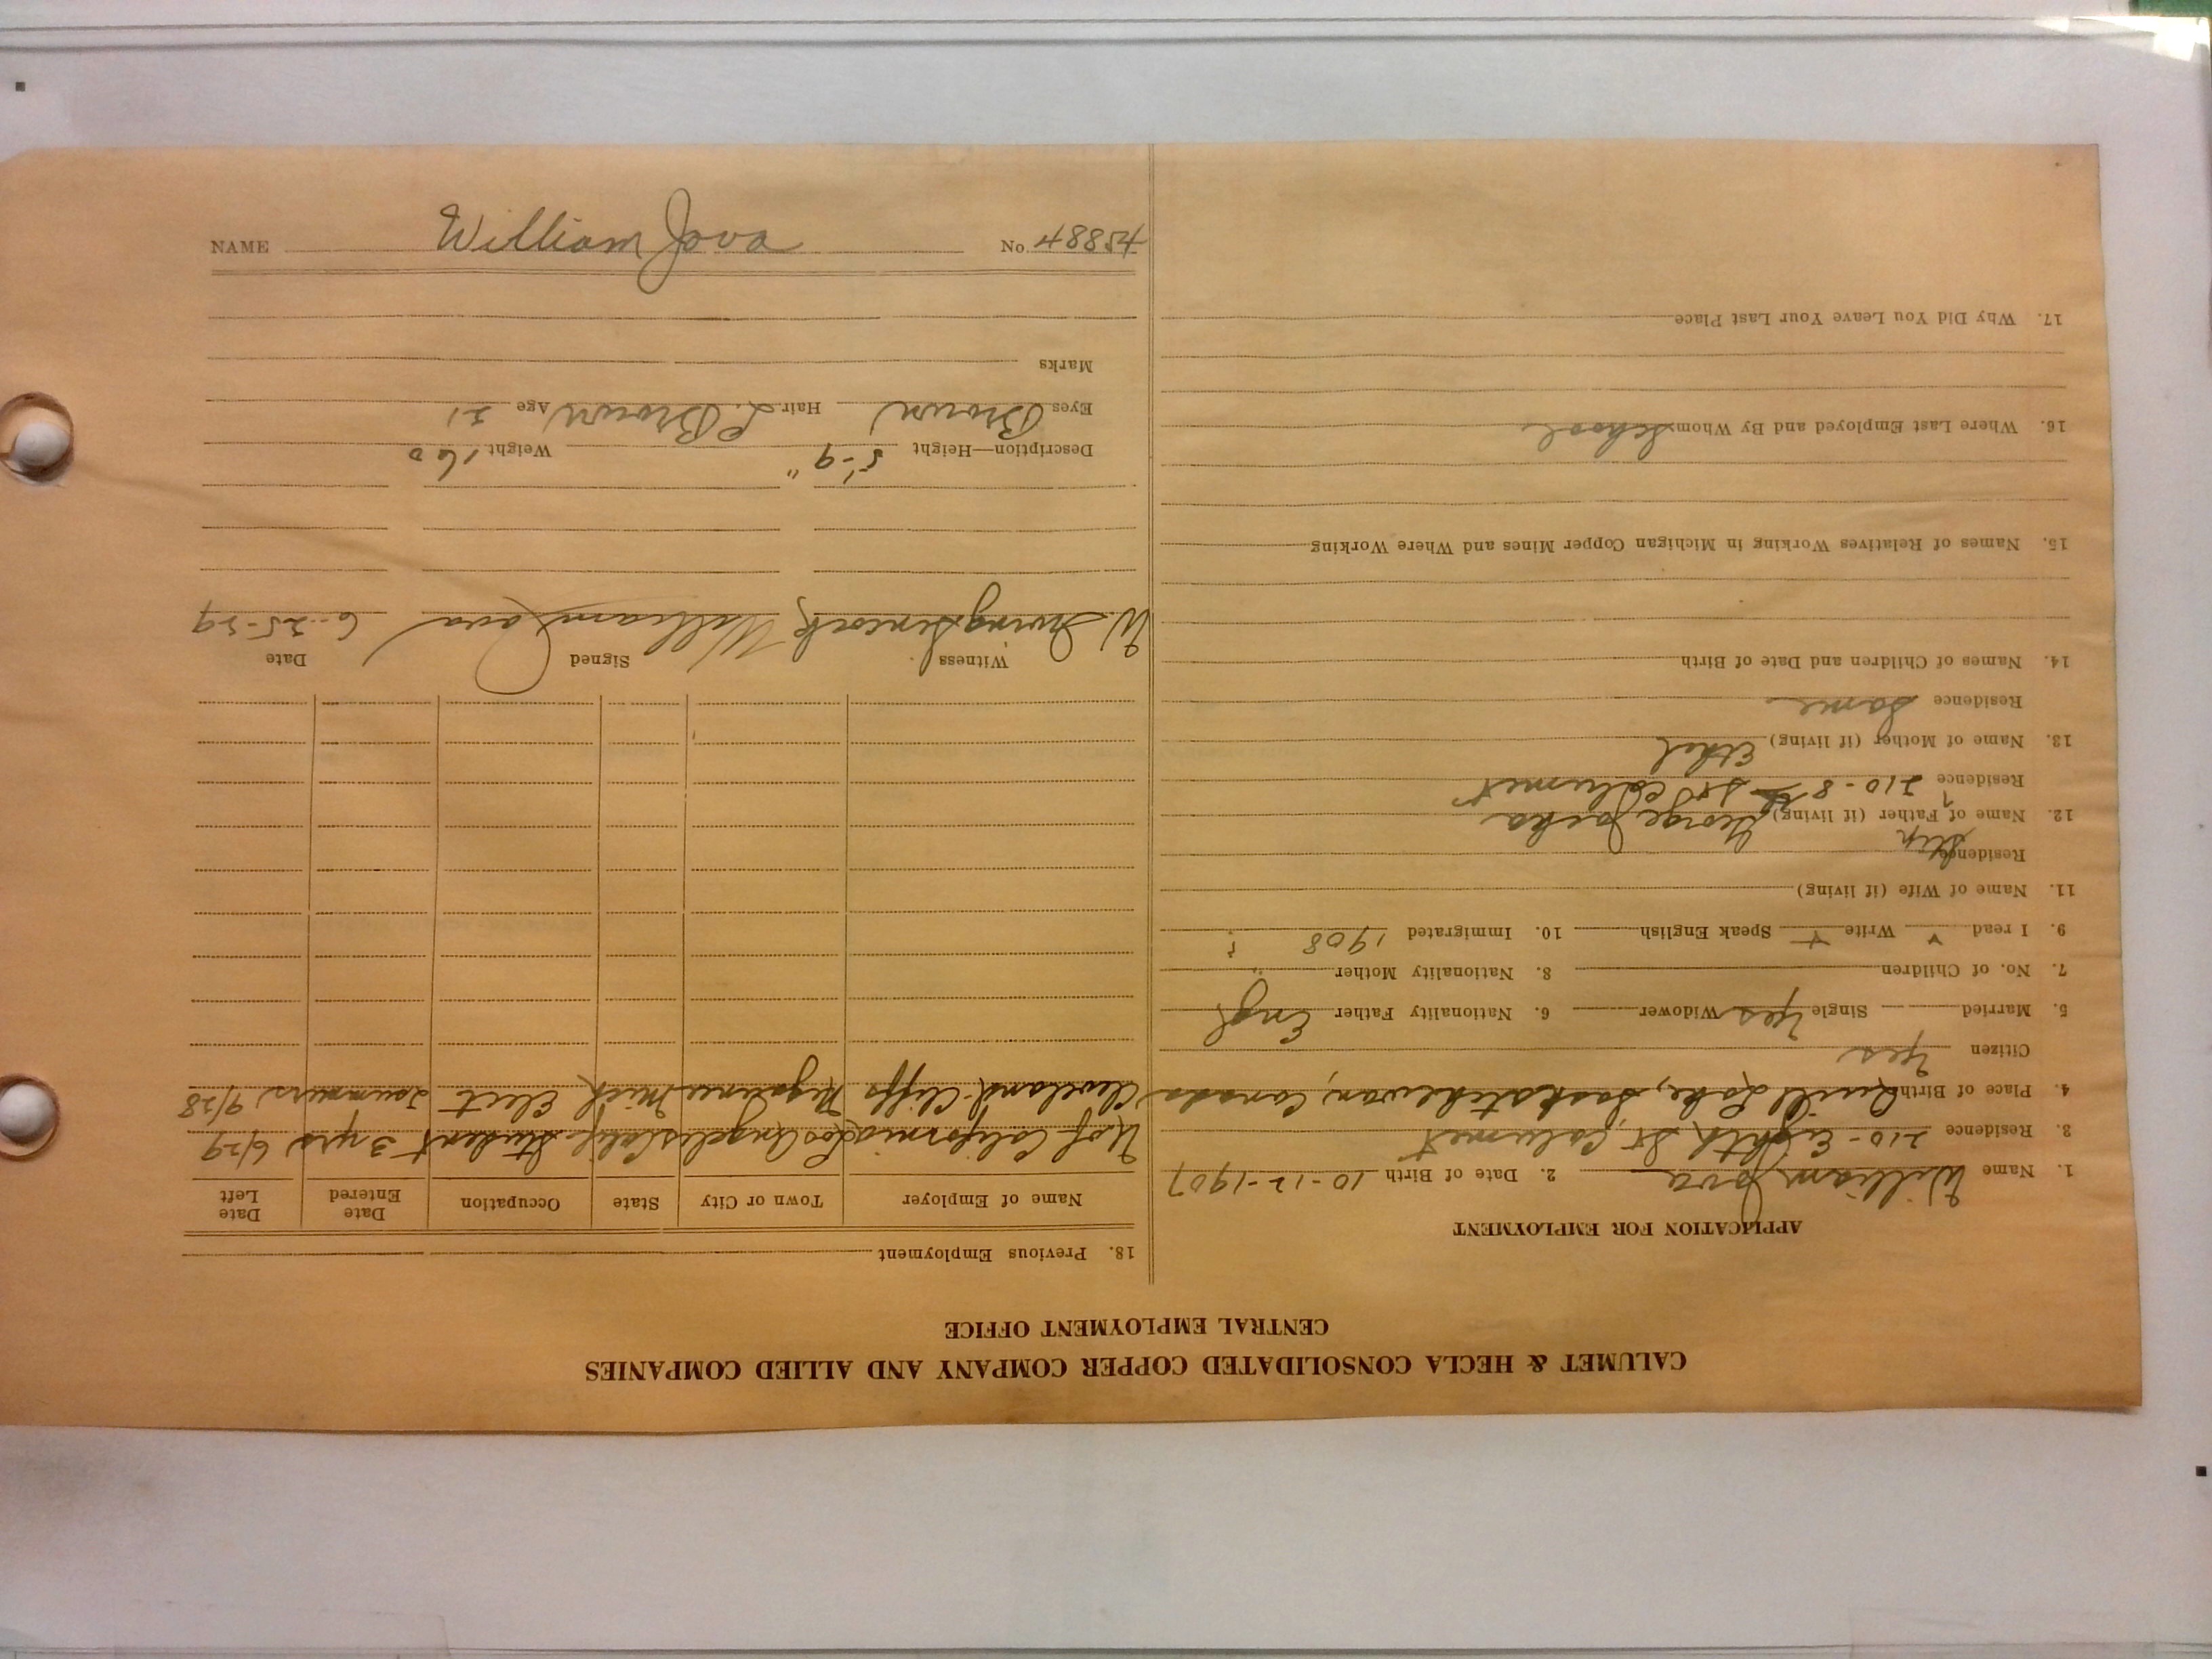 CALUMET & HECLA CONSOLIDATED COPPER COMPANY AND ALLIED COMPANIES
CENTRAL EMPLOYMENT OFFICE
APPLICATION FOR EMPLOYMENT
1. Name William Jova 2. Date of Birth 10-12-1907
3. Residence 210-Eighth St, Calumet
4. Place of Birth Quill Lake, Saskatchewan, Canada
Citizen Yes
5. Married Single Yes Widower 6. Nationality Father Engl
7. No. of Children 8. Nationality Mother "
9. I read Write Speak English 10. Immigrated 1908 ?
11. Name of Wife (if living)
Residence
Step
12. Name of Father (if living) George
Residence 210-8th St Calumet
13. Name of Mother (if living) Ethel
Residence Same
14. Names of Children and Date of Birth
15. Names of Relatives Working in Michigan Copper Mines and Where Working
16. Where Last Employed and By Whom School
17. Why Did You Leave Your Last Place
18. Previous Employment
Name of Employer Town or City State Occupation Date Entered Date Left
U of California Los Angeles Calif Student 3 yrs 6/29
Cleveland-Cliffs Negaunee Mich Elect Summers 9/28
Witness Signed Date
W. Irving William Jova 6-25-29
Description—Height 5'-9" Weight 160
Eyes Brown Hair L. Brown Age 21
Marks
NAME William Jova No. 48854